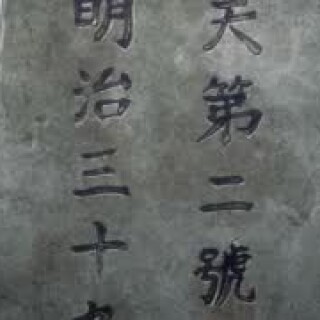 第二號
明治三十